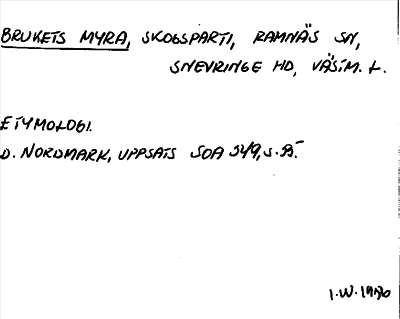 BRUKETS MYRA, SKOGSPARTI, RAMNÄS SN,
SNEVRINGE HD, VÄSTM. L.
ETYMOLOGI.
D. NORDMARK, UPPSATS SOA
I.W. 1980